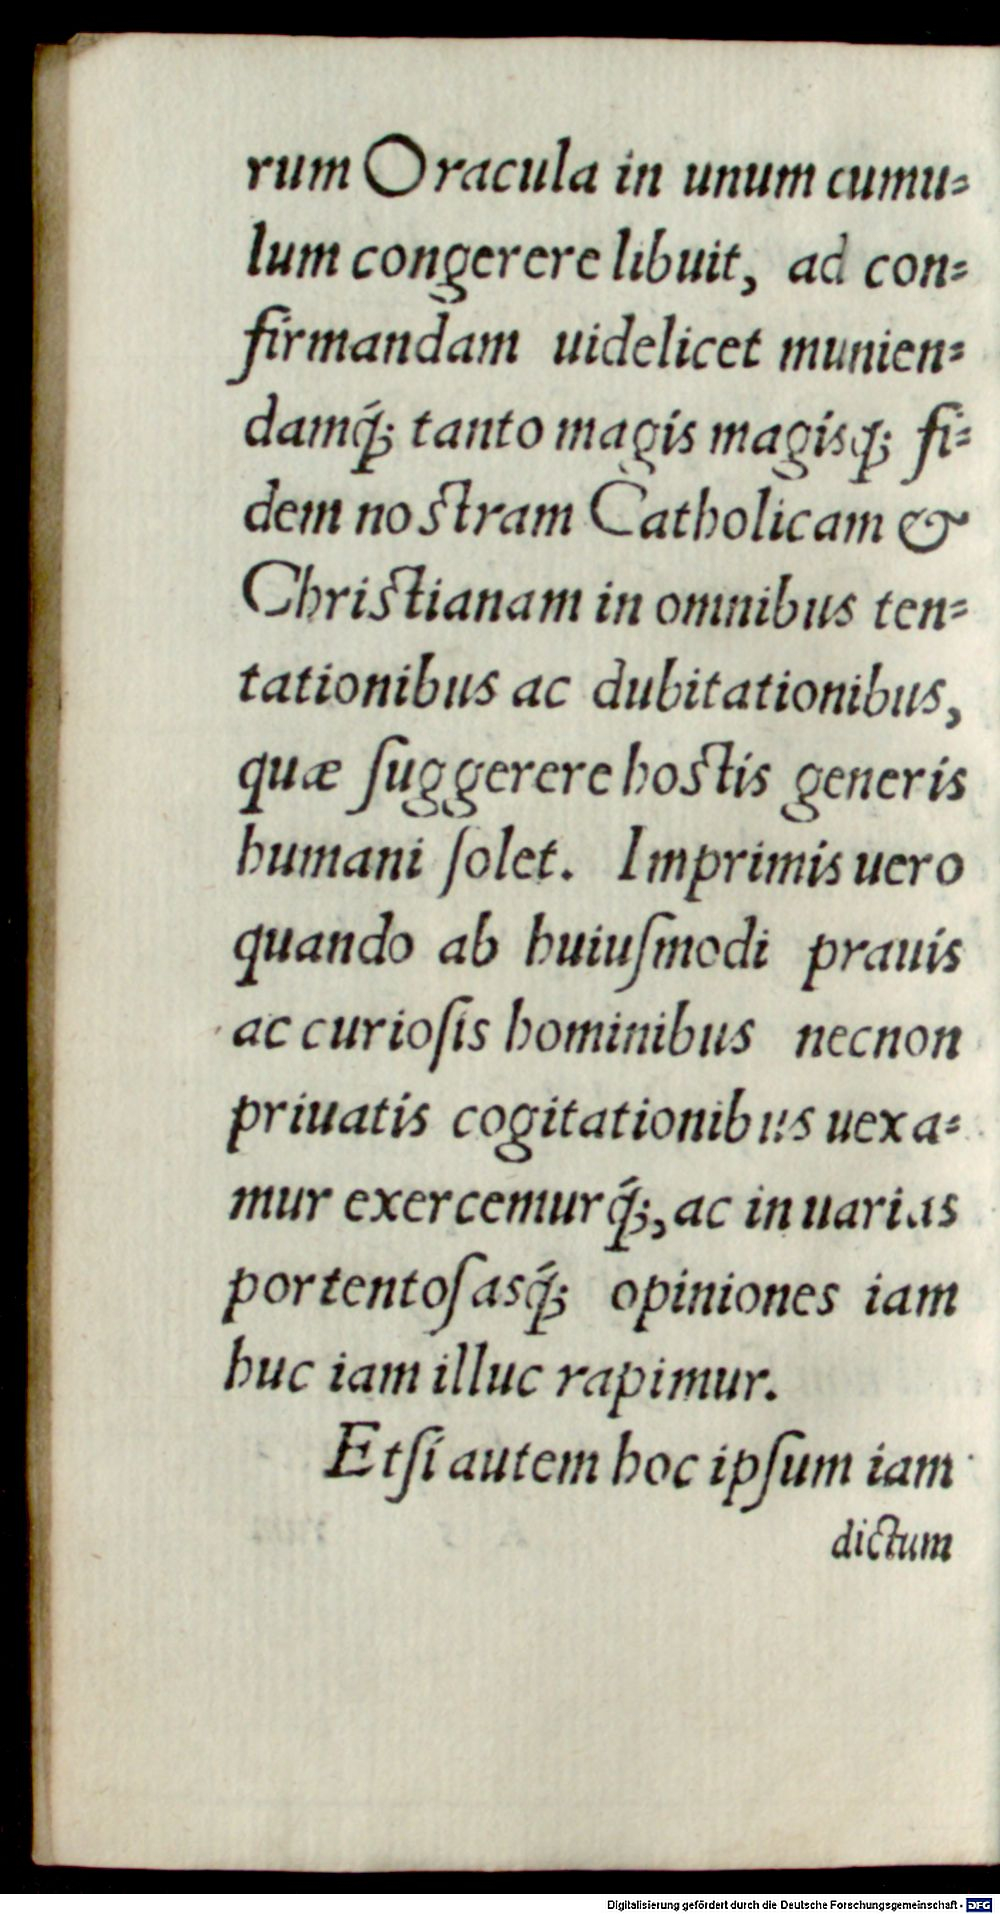 rum Oracula in unum cumu⸗
lum congerere libuit, ad con⸗
firmandam uidelicet munien⸗
damq́; tanto magis magisq́; fi⸗
dem noſtram Catholicam &
Chriſtianam in omnibus ten⸗
tationibus ac dubitationibus,
quæ ſuggerere hoſtis generis
humani ſolet. Imprimis uero
quando ab huiuſmodi prauis
ac curioſis hominibus necnon
priuatis cogitationibus uexa⸗
mur exercemurq́;, ac in uarias
portentoſasq́; opiniones iam
huc iam illuc rapimur.
Etſi autem hoc ipſum iam
dictum
Digitalisierung gefördert durch die Deutsche Forschungsgemeinschaft - DFG